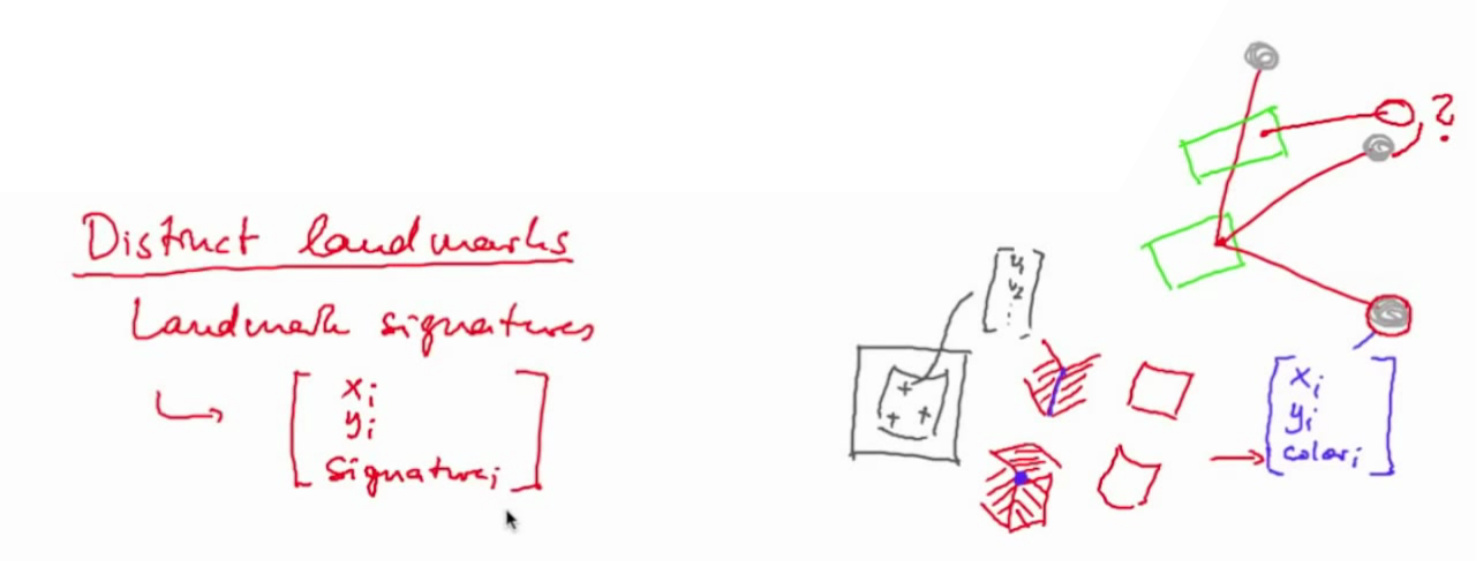 Distinct landmarks
Landmark signatures
x_i
y_i
signature_i
?
v_1
v_2
⋮
x_i
y_i
color_i